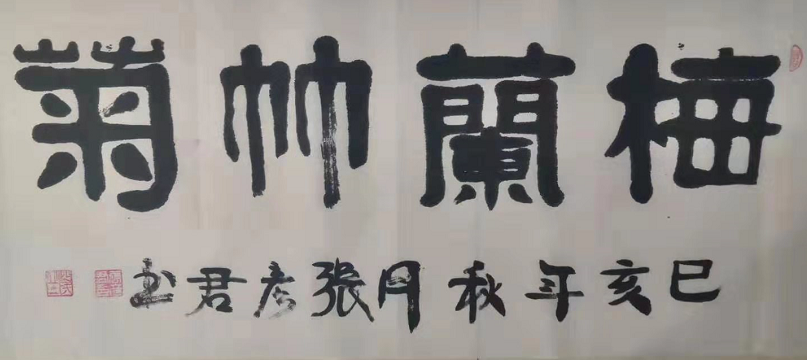 梅蘭竹菊
己亥年秋月張彦君书